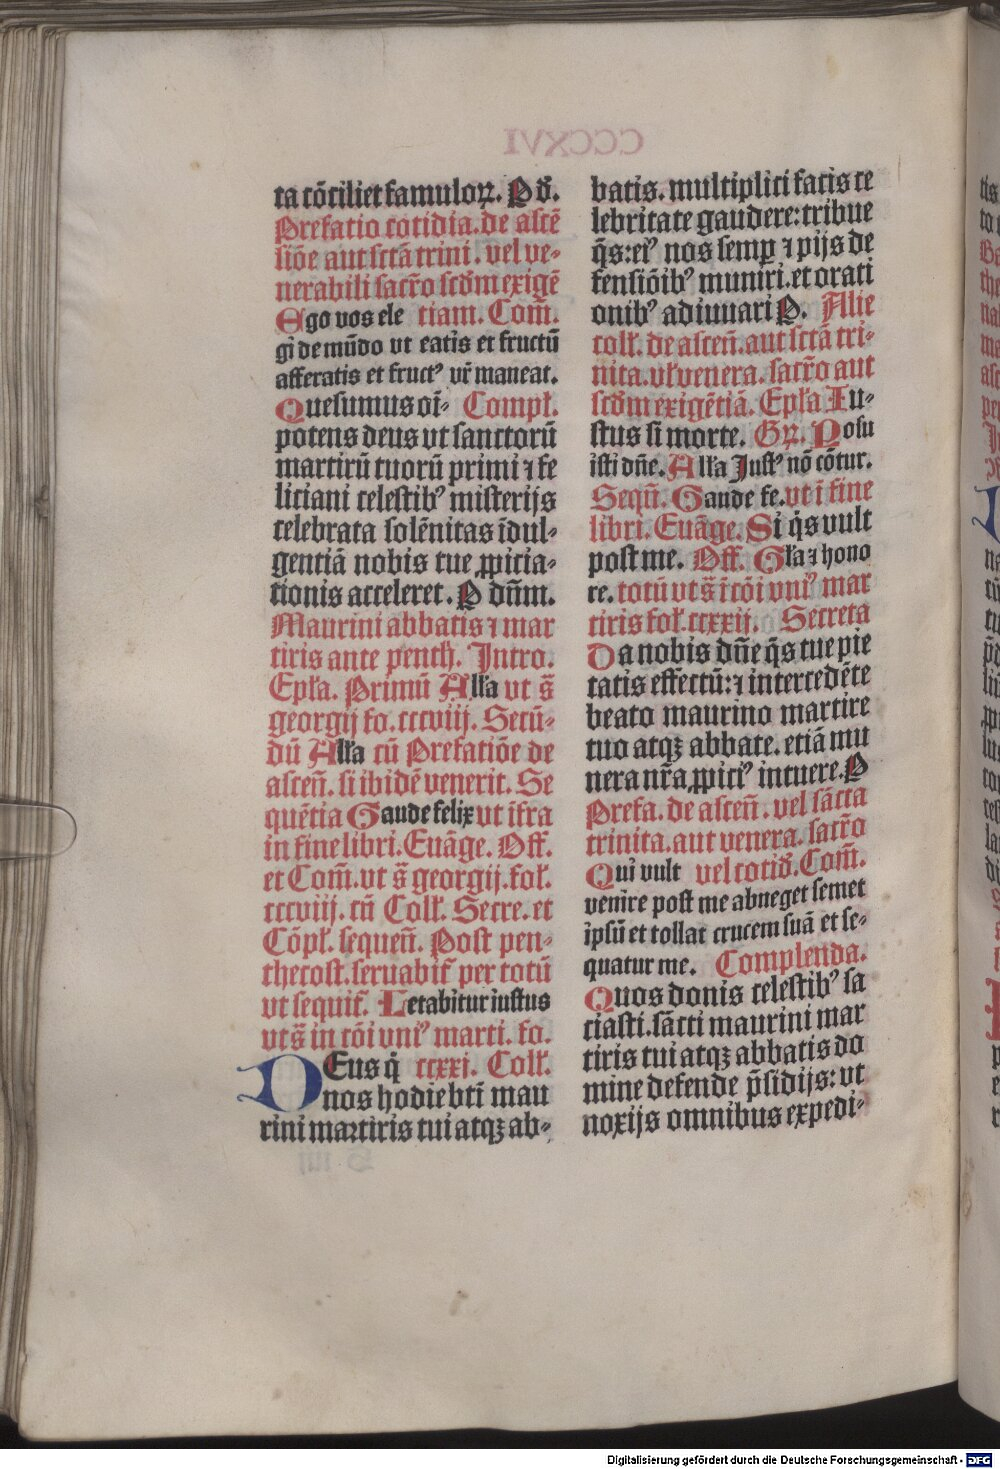 ta cōciliet famuloꝝ. P d̄.
Prefatio cotidia. de ascē
siōe aut sctā trini. vel ve-
nerabili sacr̄o scd̄m exigē
Ego vos ele tiam. Com̄.
gi de mūdo vt eatis et fructū
afferatis et fructꝰ vr̄ maneat.
Quesumus oī- Compl̄.
potens deus vt sanctorū
martirū tuorū primi ⁊ fe
liciani celestibꝰ misterijs
celebrata solēnitas īdul-
gentiā nobis tue ꝓpicia-
tionis acceleret. P dn̄m.
Maurini abbatis ⁊ mar
tiris ante penth̄. Intro.
Epl̄a. Primū All̄a vt s̄
georgij fo. cccviij. Secū-
dū All̄a cū Prefatiōe de
ascen̄. si ibidē venerit. Se
quētia Gaude felix vt ifra
in fine libri. Euāge. Off.
et Com̄. vt s̄ georgij. fol̄.
cccviij. cū Coll̄. Secre. et
Cōpl̄. sequen̄. Post pen-
thecost. seruabit̄ per totū
vt sequit̄. Letabitur iustus
vt s̄ in cōi vniꝰ marti. fo.
DEus q̇ ccxxi. Coll̄.
nos hodie bti̅ mau
rini martiris tui atqꝫ ab-
batis. multiplici facis ce
lebritate gaudere: tribue
q̄s: eiꝰ nos semꝑ ⁊ pijs de
fensiōibꝰ muniri. et orati
onibꝰ adiuuari P. Alie
coll̄. de ascen̄. aut sctā tri-
nita. vl̄ venera. sacr̄o aut
scd̄m exigētiā. Epl̄a Iu-
stus si morte. Gꝝ. Posu
isti dn̄e. All̄a Iustꝰ nō cōtur.
Seqū. Gaude fe. vt ī fine
libri. Euāge. Si q̇s vult
post me. Off. Gl̄a ⁊ hono
re. totū vt s̄ ī cōi vniꝰ mar
tiris fol̄. ccxxij. Secreta
Da nobis dn̄e q̄s tue pie
tatis effectū: ⁊ intercedēte
beato maurino martire
tuo atqꝫ abbate. etiā mu
nera nr̄a ꝓpiciꝰ intuere. P
Prefa. de ascen̄. vel sācta
trinita. aut venera. sacr̄o
Qui vult vel cotid̄. Com̄.
venire post me abneget semet
ipsū et tollat crucem suā et se-
quatur me. Complenda.
Quos donis celestibꝰ sa
ciasti. sācti maurini mar
tiris tui atqꝫ abbatis do
mine defende p̄sidijs: vt
noxijs omnibus expedi-
Digitalisierung gefördert durch die Deutsche Forschungsgemeinschaft - DFG